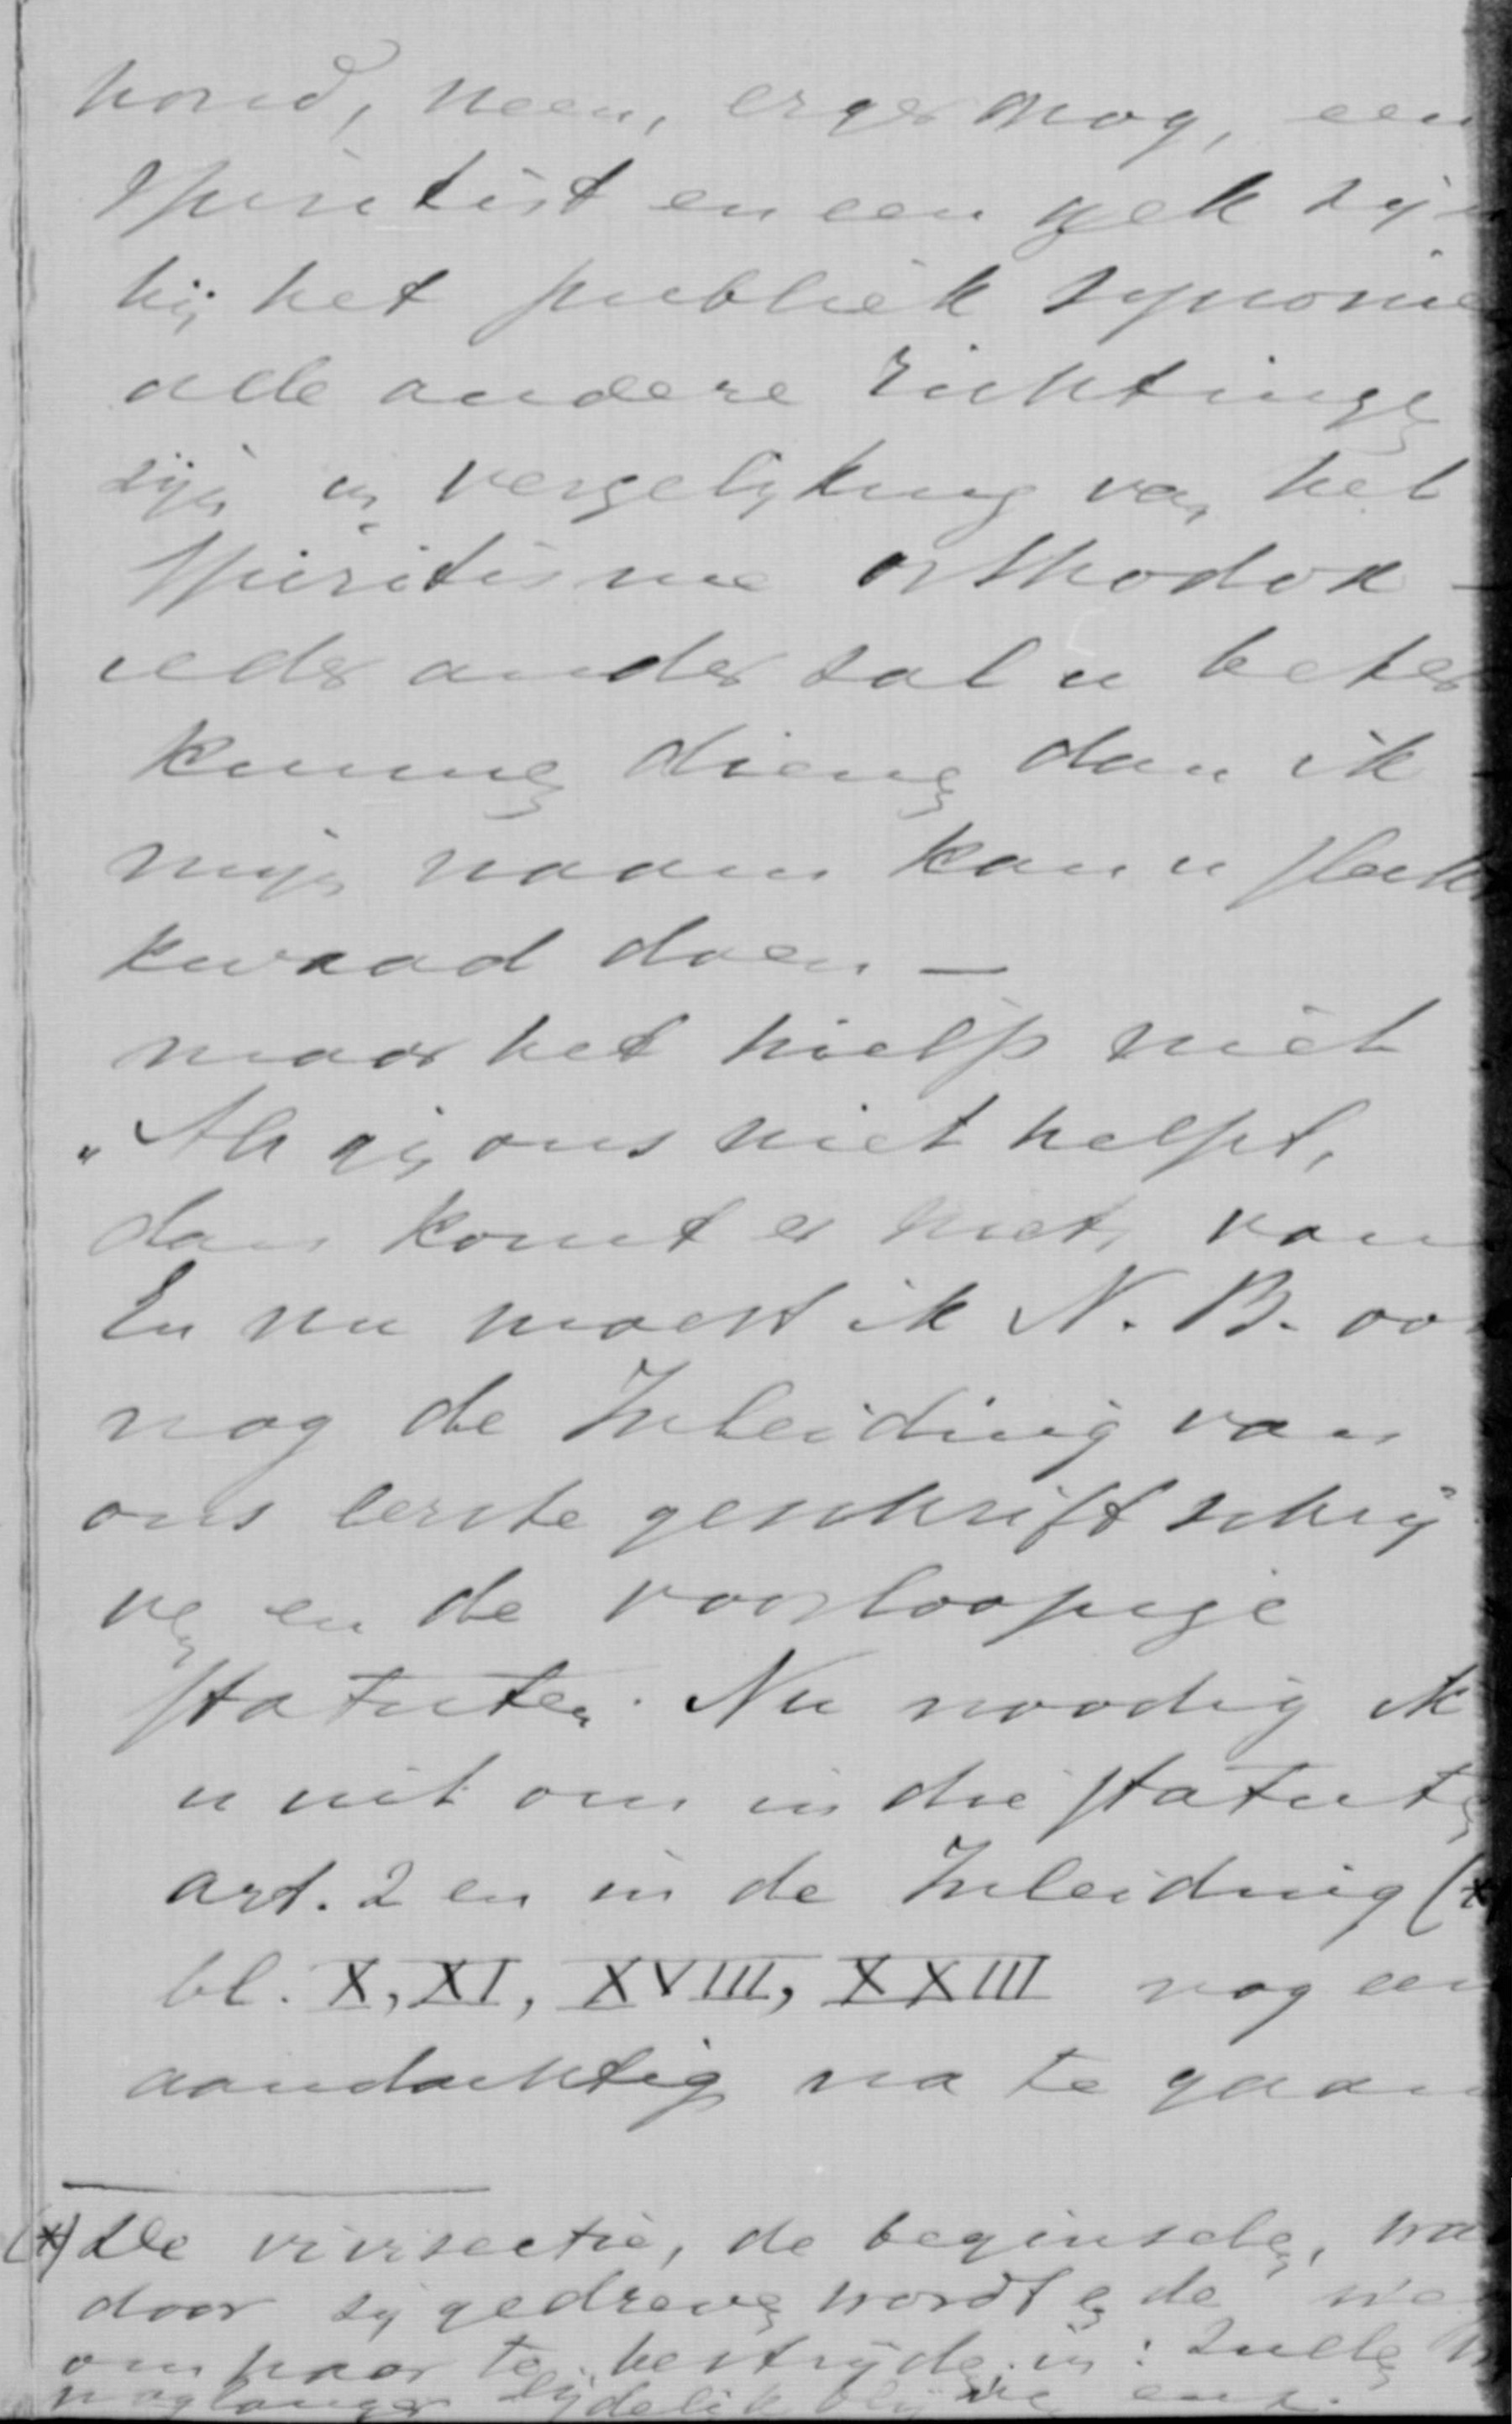 hond, neen, erger nog, een
spiritist en een gek zijn
bij het publiek synonie
alle andere richtingen
zijn in vergelijking van het
Spiritisme orthodox –
ieder ander zal u beter
kunnen dienen dan ik –
mijn naam kan u slechts
kwaad doen —
maar het hielp niet
„Als gij ons niet helpt,
dan komt er niets van
En nu moest ik N. B. oo
nog de Inleiding van
ons eerste geschrift schrij
ven en de voorloopige
statuten. Nu noodig ik
u uit om in die statuten
art. 2 en in de Inleiding (*
bl. X, XI, XVIII, XXIII nog een
aandachtig na te gaan
(*) De vivisectie, de beginselen, wa
door zij gedreven wordt en de we
om haar te bestrijden in: Zullen w
nog langer lijdelik blijven enz.